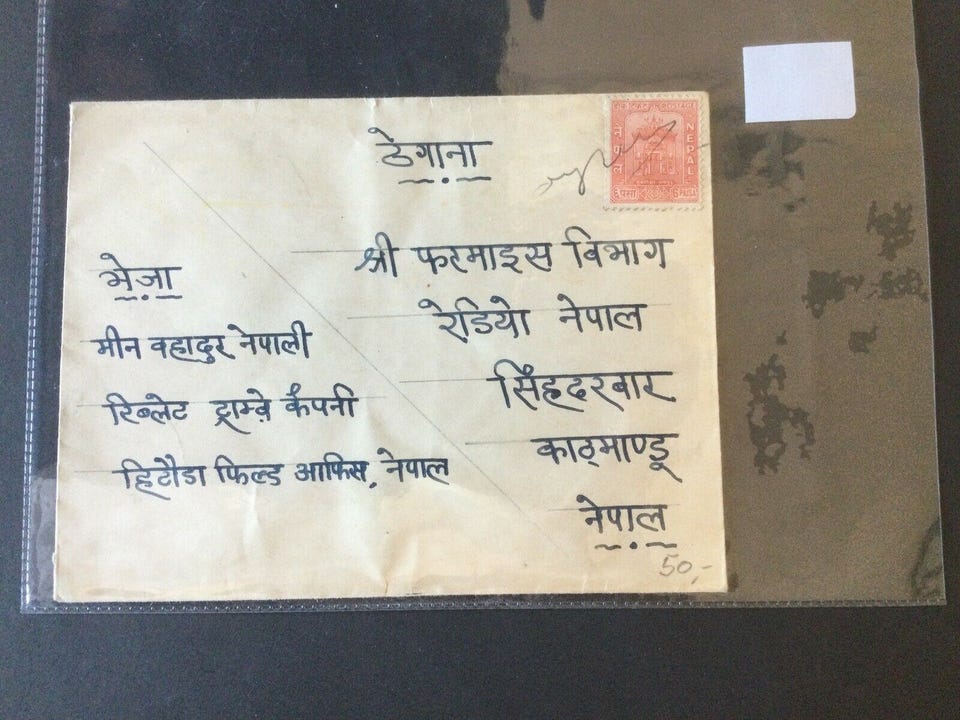 ठेगाना
श्री फरमाइस विभाग
रेडियो नेपाल
सिंहदरबार
काठ्माण्डू
नेपाल
भेजा
मीन वहादुर नेपाली
रिब्लेट ट्राम्वे कंपनी
हिटौडा फिल्ड आफिस, नेपाल
ने पा ल
NEPAL
50,-